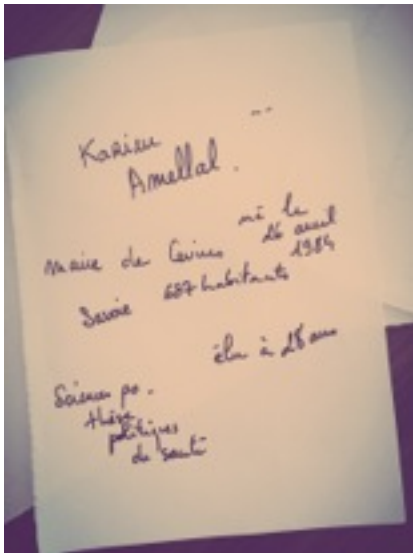 Karim
Amellal.
né le
26 avril
1984
maire de Cevins
Savoie 687 habitants
élu à 28 ans
Sciences po.
thèse
politiques
de santé